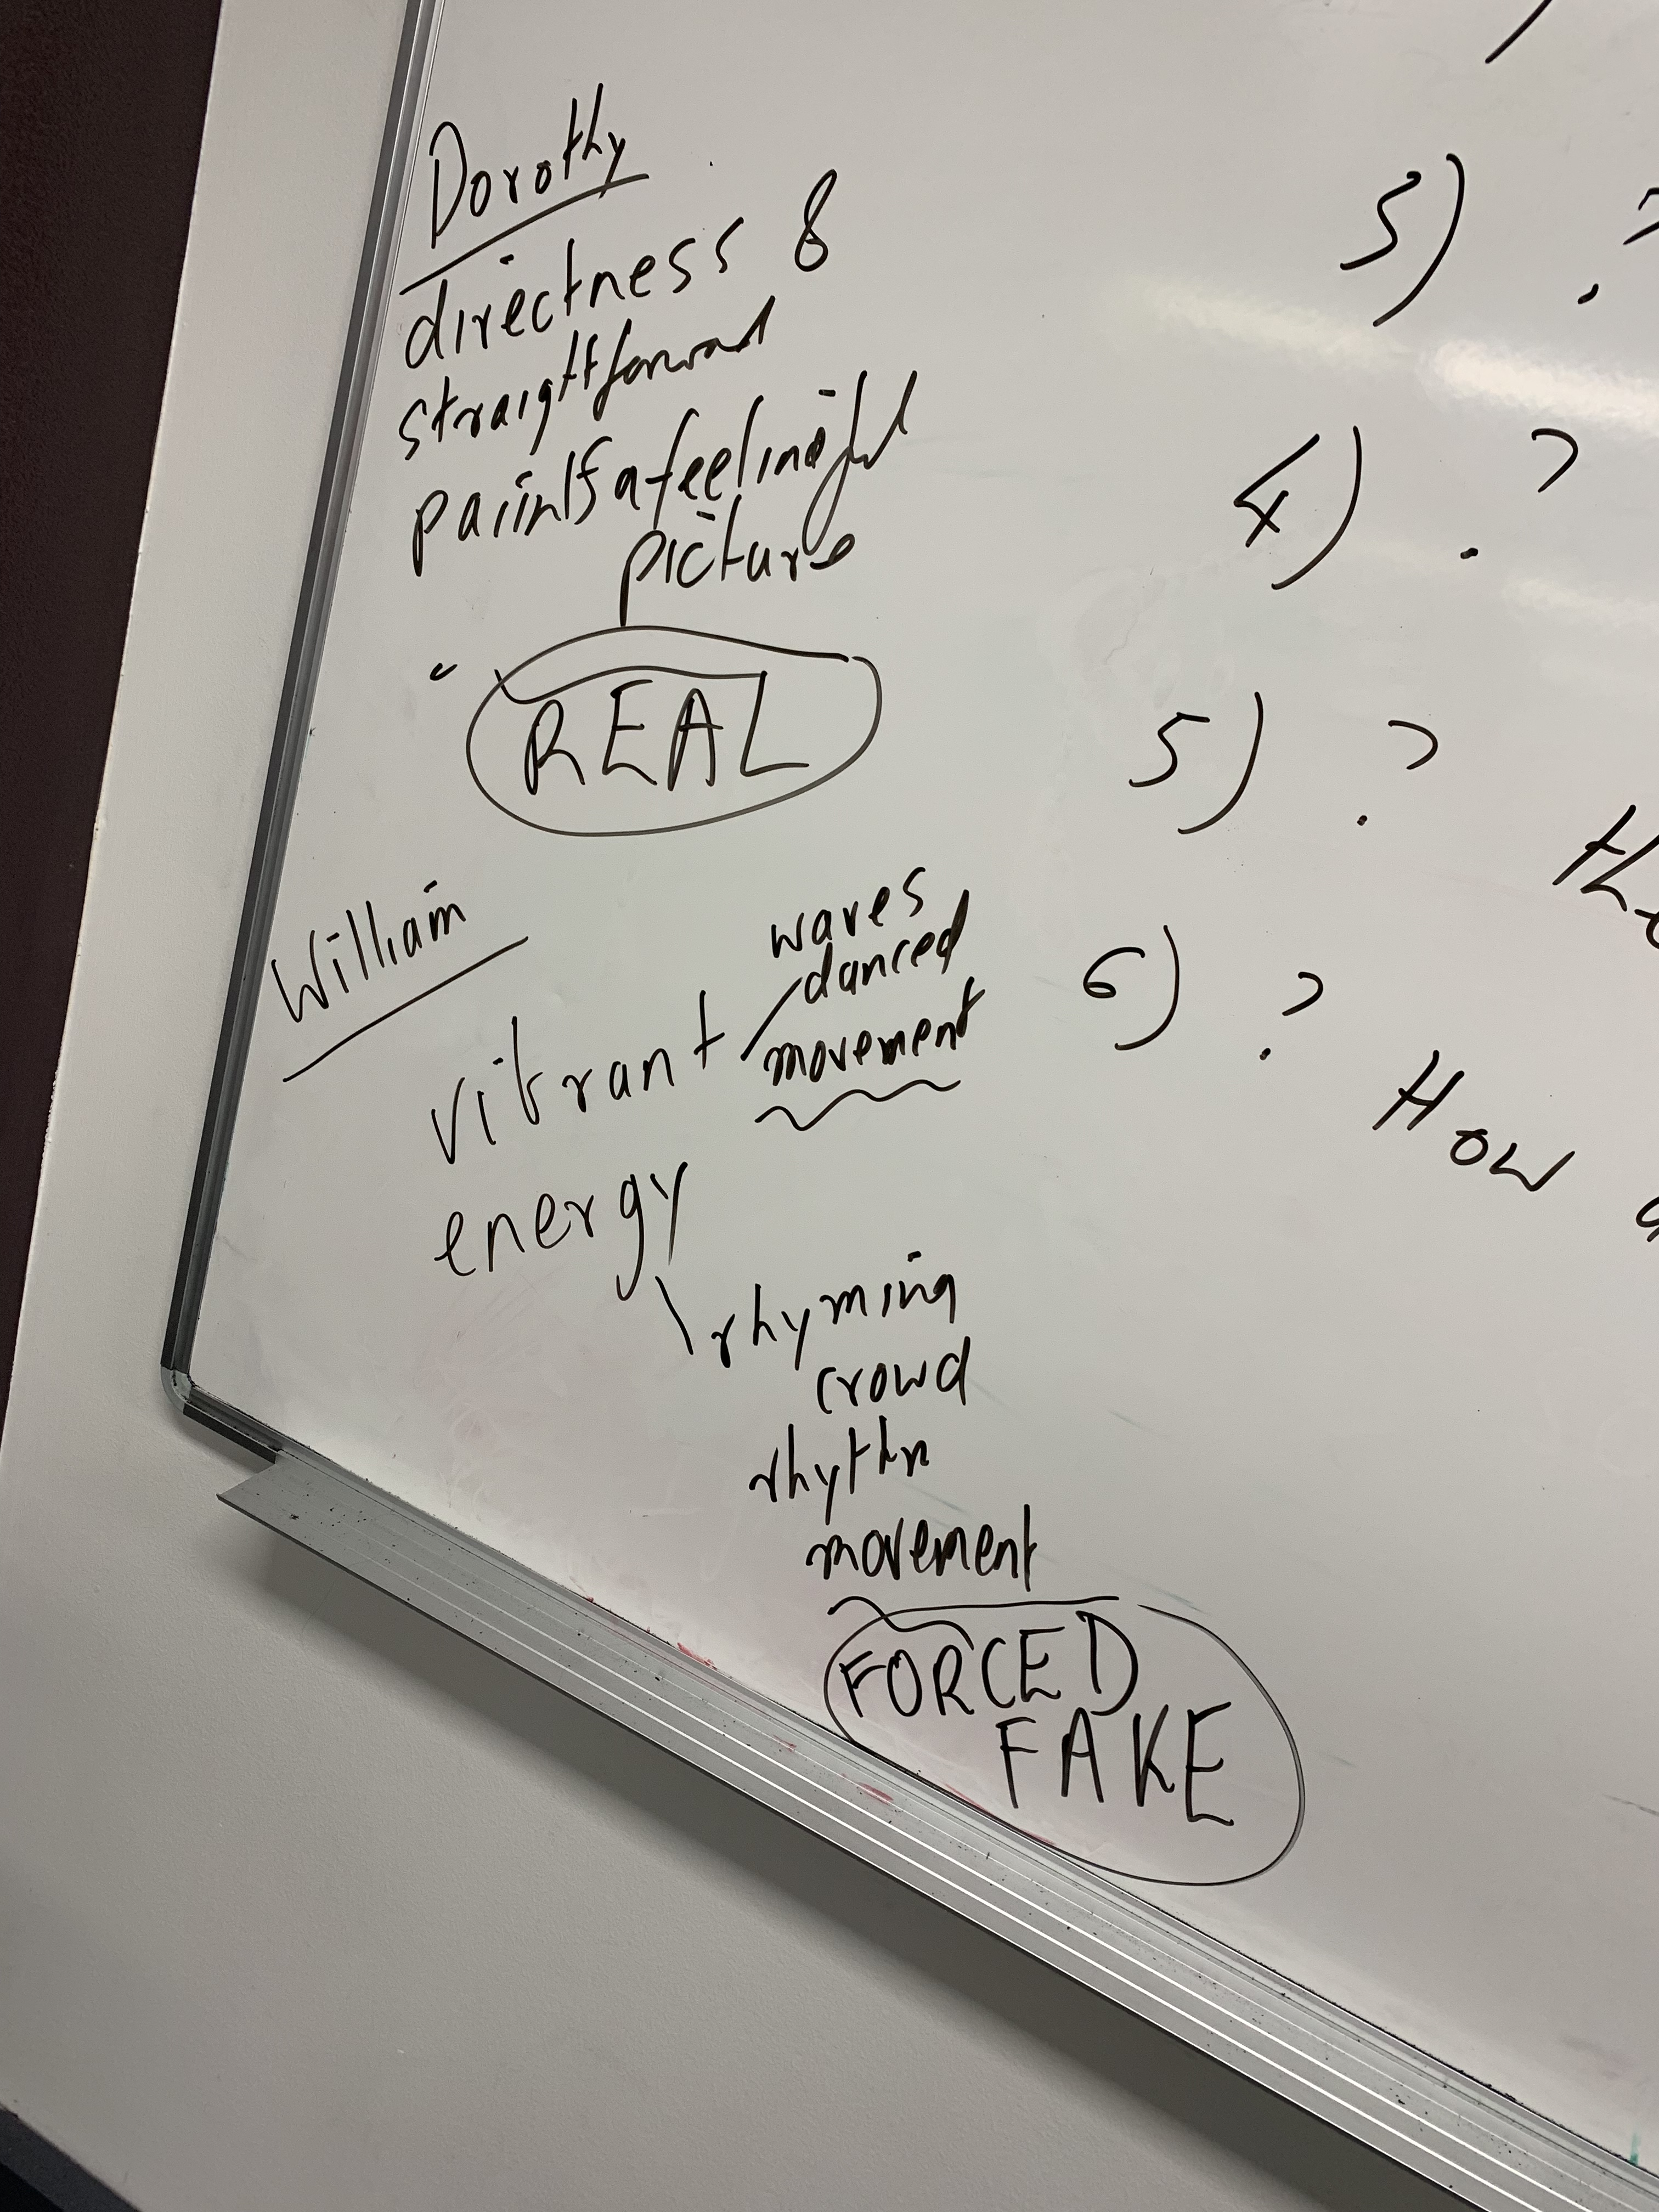 Dorothy
directness &
straightforward
paiints a feelingful
picture
REAL
William
vibrant
waves
danced
movement
energy
rhyming
crowd
rhythm
movement
FORCED
FAKE
3) ?
4) ?
5) ?
6) ?
How